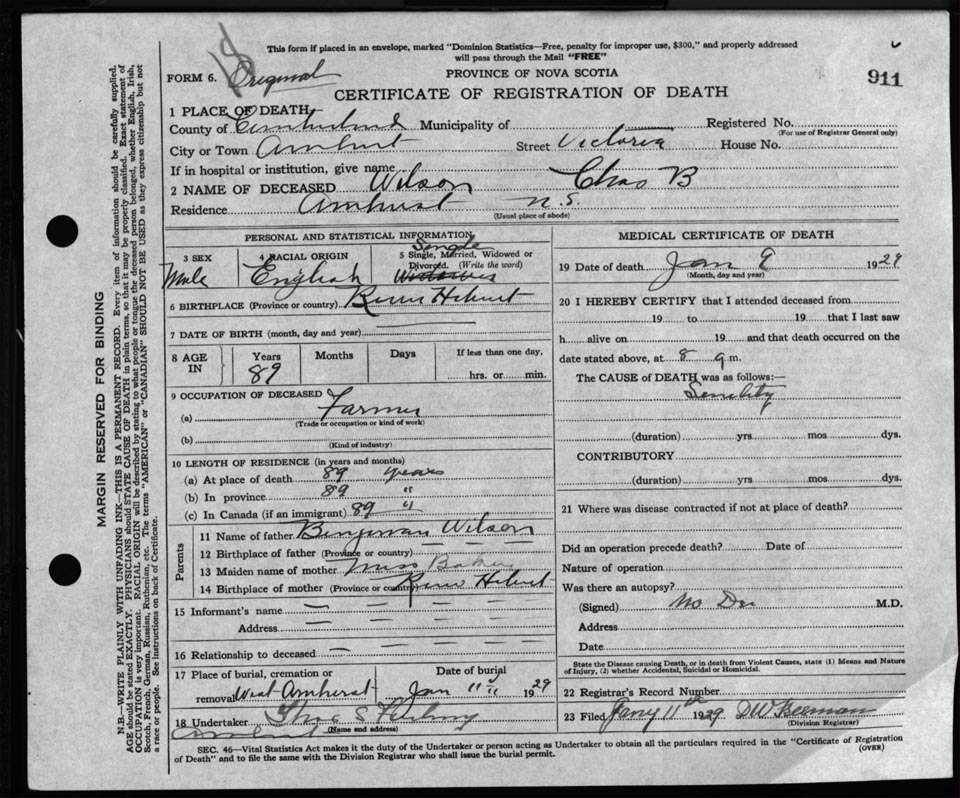 This form if placed in an envelope, marked "Dominion Statistics—Free, penalty for improper use, $300," and properly addressed
will pass through the Mail "FREE"
FORM 6. Original PROVINCE OF NOVA SCOTIA 911
CERTIFICATE OF REGISTRATION OF DEATH
1 PLACE OF DEATH
County of Cumberland Municipality of Registered No.
(For use of Registrar General only)
City or Town Amherst Street Victoria House No.
If in hospital or institution, give name
2 NAME OF DECEASED Wilson Chas B
Residence Amherst N.S.
(Usual place of abode)
PERSONAL AND STATISTICAL INFORMATION
3 SEX 4 RACIAL ORIGIN 5 Single, Married, Widowed or Divorced. (Write the word)
Male English Single
6 BIRTHPLACE (Province or country) River Hebert
7 DATE OF BIRTH (month, day and year)
8 AGE IN Years Months Days If less than one day,
89 hrs. or min.
9 OCCUPATION OF DECEASED
(a) Farmer
(Trade or occupation or kind of work)
(b)
(Kind of industry)
10 LENGTH OF RESIDENCE (in years and months)
(a) At place of death 89 years
(b) In province 89 "
(c) In Canada (if an immigrant) 89 "
Parents
11 Name of father Wilson
12 Birthplace of father (Province or country)
13 Maiden name of mother Miss Baker
14 Birthplace of mother (Province or country) River Hebert
15 Informant's name —
Address
16 Relationship to deceased —
17 Place of burial, cremation or removal West Amherst Date of burial Jan 11 1929
18 Undertaker Amherst
(Name and address)
MEDICAL CERTIFICATE OF DEATH
19 Date of death Jan 9 1929
(Month, day and year)
20 I HEREBY CERTIFY that I attended deceased from
19 to 19 that I last saw
h alive on 19 and that death occurred on the
date stated above, at 8 m.
The CAUSE of DEATH was as follows:—
Senility
(duration) yrs mos dys.
CONTRIBUTORY
(duration) yrs mos dys.
21 Where was disease contracted if not at place of death?
Did an operation precede death? Date of
Nature of operation
Was there an autopsy?
(Signed) No Dr M.D.
Address
Date
State the Disease causing Death, or in death from Violent Causes, state (1) Means and Nature
of Injury, (2) whether Accidental, Suicidal or Homicidal.
22 Registrar's Record Number
23 Filed Jany 11th 1929 DW Beeman
(Division Registrar)
SEC. 46—Vital Statistics Act makes it the duty of the Undertaker or person acting as Undertaker to obtain all the particulars required in the "Certificate of Registration
of Death" and to file the same with the Division Registrar who shall issue the burial permit. (OVER)
MARGIN RESERVED FOR BINDING
N.B.—WRITE PLAINLY WITH UNFADING INK—THIS IS A PERMANENT RECORD. Every item of information should be carefully supplied.
AGE should be stated EXACTLY. PHYSICIANS should STATE CAUSE OF DEATH in plain terms, so that it may be properly classified. Exact statement of
OCCUPATION is very important. RACIAL ORIGIN will be described by stating to what people or tongue the deceased person belonged, whether English, Irish,
Scotch, French, German, Russian, Ruthenian, etc. The terms "AMERICAN" or "CANADIAN" SHOULD NOT BE USED as they express citizenship but not
a race or people. See instructions on back of Certificate.